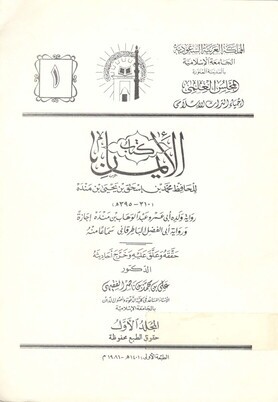 المملكة العربية السعودية
الجامعة الإسلامية
بالمدينة المنورة
المجلس العلمي
إحياء التراث الإسلامي
١
كتاب
الإيمان
للحافظ محمد بن إسحق بن يحيى بن منده
(٣١٠ - ٣٩٥ هـ)
رواية ولده أبي عمرو عبد الوهاب بن منده إجازة
ورواية أبي الفضل الباطرقاني سماعا منه
حققه وعلق عليه وخرج أحاديثه
الدكتور
علي بن محمد بن ناصر الفقيهي
بالجامعة الإسلامية
المجلد الأول
حقوق الطبع محفوظة
الطبعة الأولى ١٤٠١ هـ - ١٩٨١ م